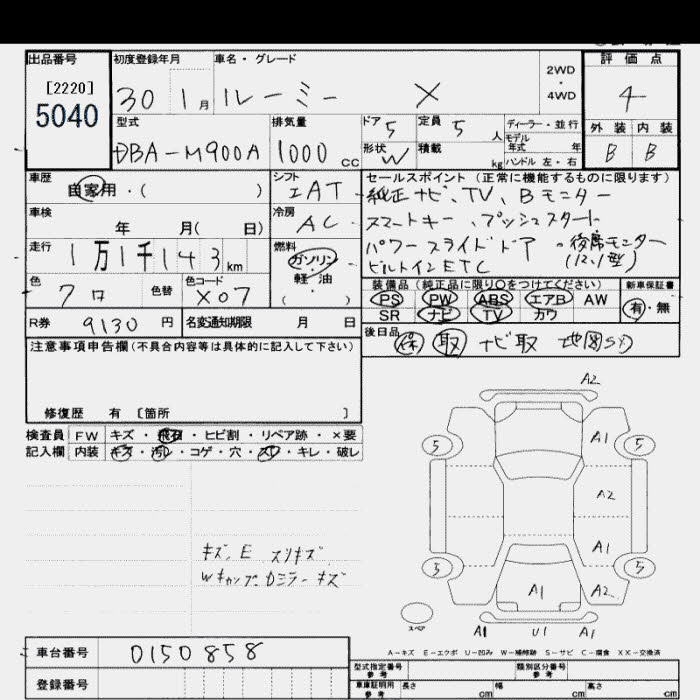 出品番号 初度登録年月 車名・グレード 評価点
[2220] 2WD
5040 30 1月 ルーミー X ・ 4
4WD
型式 排気量 ドア 5 定員 5人 ディーラー・並行 外装 内装
モデル年式 年
DBA-M900A 1000cc 形状 W 積載 kg ハンドル 左・右 B B
車歴 自家用・( ) シフト IAT セールスポイント (正常に機能するものに限ります)
純正ナビ、TV、Bモニター
車検 年 月( 日) 冷房 AC スマートキー、プッシュスタート
走行 1万1千143km 燃料 ガソリン・軽油 ( ) パワースライドドア 。後席モニター
ビルトインETC (12.1型)
色 クロ 色替 色コード X07 装備品 (純正品に限り○をつけてください) 新車保証書
PS PW ABS エアB AW 有・無
SR ナビ TV カワ
R券 9130円 名変通知期限 月 日 後日品 保 取 ナビ取 地図SD
注意事項申告欄 (不具合内容等は具体的に記入して下さい)
修復歴 有 〔箇所 〕
検査員 FW キズ・飛石・ヒビ割・リペア跡・×要
記入欄 内装 キズ・汚レ・コゲ・穴・スレ・キレ・破レ
A2
5 A1 5
A2
A1
キズ、E スリキズ
Wキャップ、Dミラーキズ
5 A1 A2 5
スペア A1 U1 A1
A-キズ E-エクボ U-凹み W-補修跡 S-サビ C-腐食 XX-交換済
車台番号 0150858
型式指定番号参考 類別区分番号
登録番号 車庫証明用参考 長さ cm 幅 cm 高さ cm